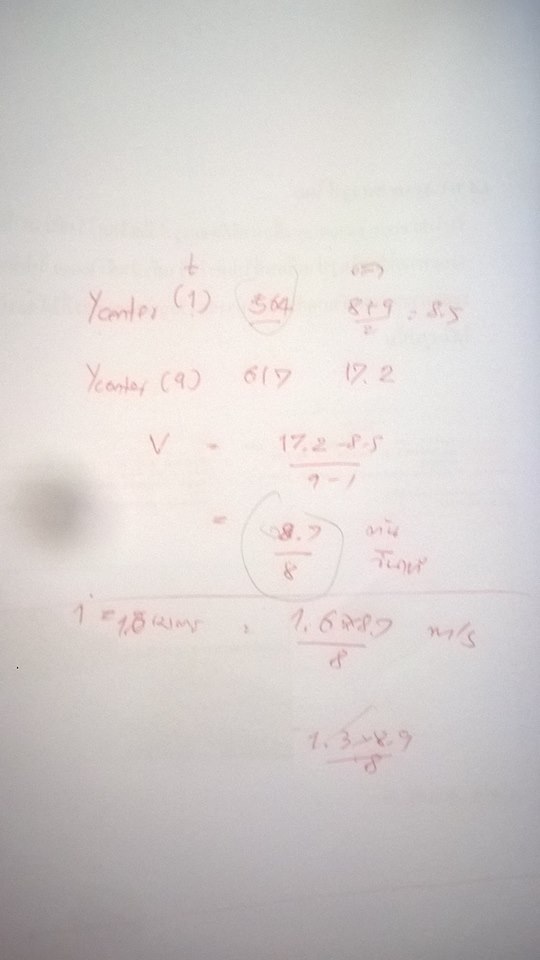 t
Ycenter (1) 564 8+9/2 = 8.5
Ycenter (9) 617 17.2
V = 17.2-8.5/9-1
= 8.7/8
1 = 1.6 เมตร 1.6×8.7/8 m/s
1.3×8.9/8